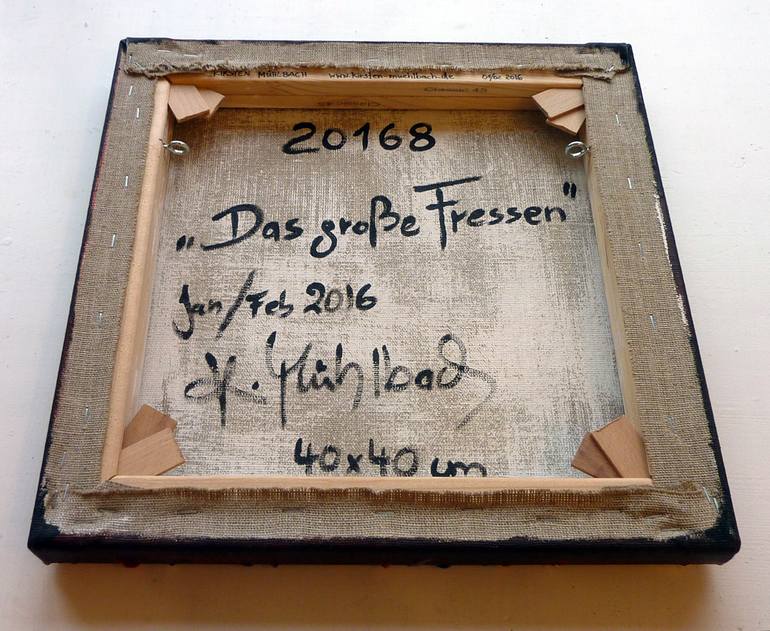 KIRSTEN MÜHLBACH www.kirsten-muehlbach.de 2016
Classic 45
20168
„Das große Fressen"
Jan/Feb 2016
K. Mühlbach
40x40 cm